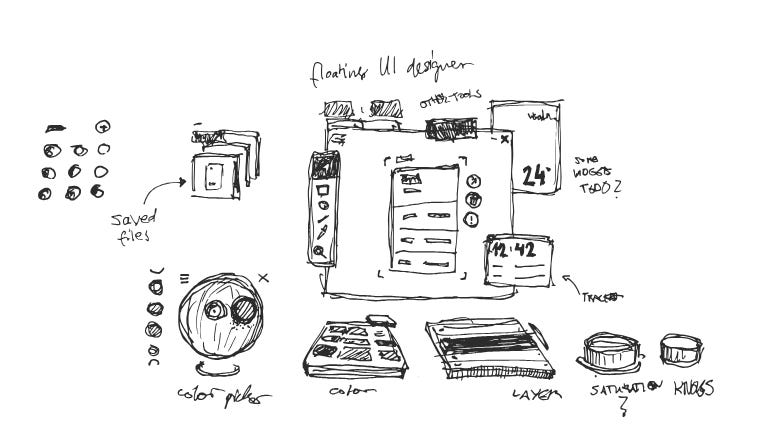 floating UI designer
OTHER TOOLS
24°
SOME
TODO?
saved
files
12:42
TRACKER
color picker
color
LAYER
SATURATION
?
KNOBS